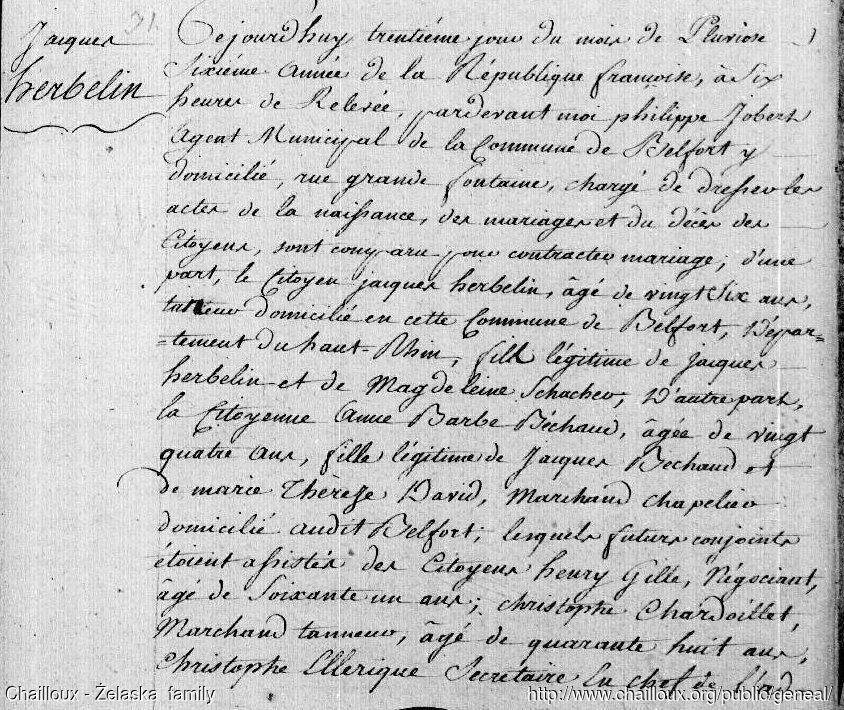 31.
Jacques
herbelin
Cejourdhuy trentiéme jour du mois de Pluviose
Sixiéme année de la République françoise, à Six
heures de Relevée, pardevant moi philippe Jobert
Agent Municipal de la Commune de Belfort y
domicilié, rue grande fontaine, chargé de dresser les
actes de la naissance, des mariages et du décès des
Citoyens, sont comparu pour contracter mariage; d'une
part, le Citoyen jacques herbelin, âgé de vingt Six ans,
tanneur domicilié en cette Commune de Belfort, Dépar=
=tement du haut-Rhin, fill légitime de jacques
herbelin et de Magdeleine Schacher, D'autre part,
la Citoyenne Anne Barbe Béchaud, âgée de vingt
quatre ans, fille légitime de Jacques Bechaud et
de marie Thérese David, Marchand chapelier
domicilié audit Belfort; lesquels futurs conjoints
étoient assistés des Citoyens henry Gille, Négociant,
âgé de Soixante un ans; christophe Chardoillet,
Marchand tanneur, âgé de quarante huit ans,
Christophe Ellerique Secretaire En chef de l'ad
Chailloux - Żelaska family
http://www.chailloux.org/public/geneal/